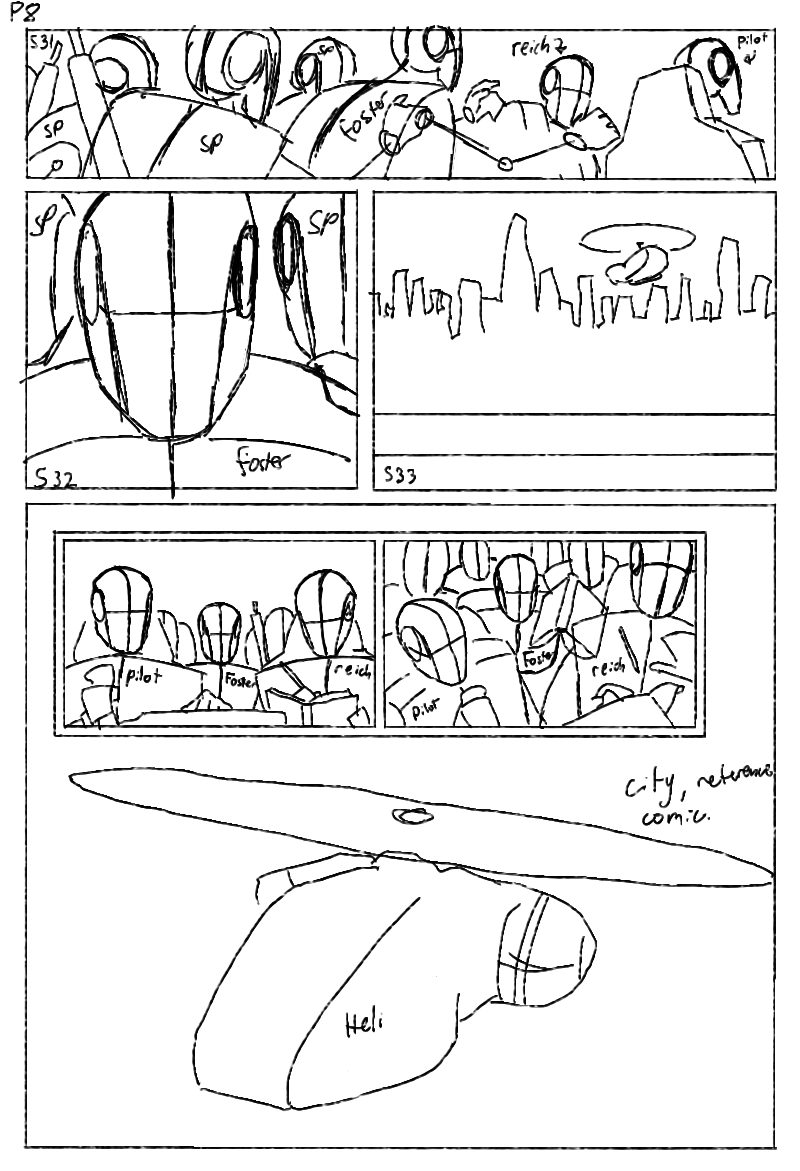 P8
S31
SP
SP
SP
Foster 2
reich 2
pilot
SP
SP
foster
S32
S33
pilot
Foster
reich
pilot
Foster
reich
city, reference
comic.
Heli